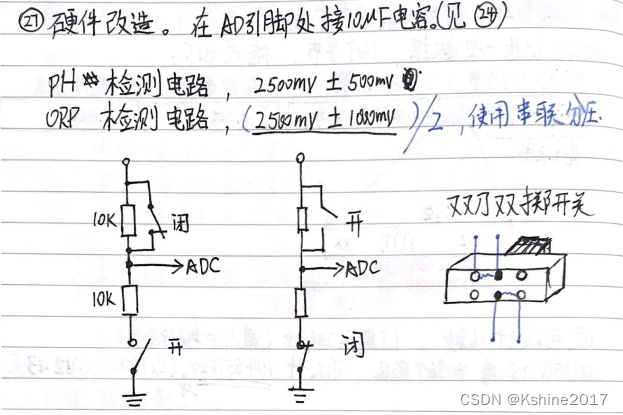 ㉑ 硬件改造。在AD引脚处接10μF电容。(见㉔)
PH 检测电路, 2500mV ± 500mV
ORP 检测电路, (2500mV ± 1000mV)/2, 使用串联分压
双刀双掷开关
10K 闭 开
ADC ADC
10K
开 闭
CSDN @Kshine2017